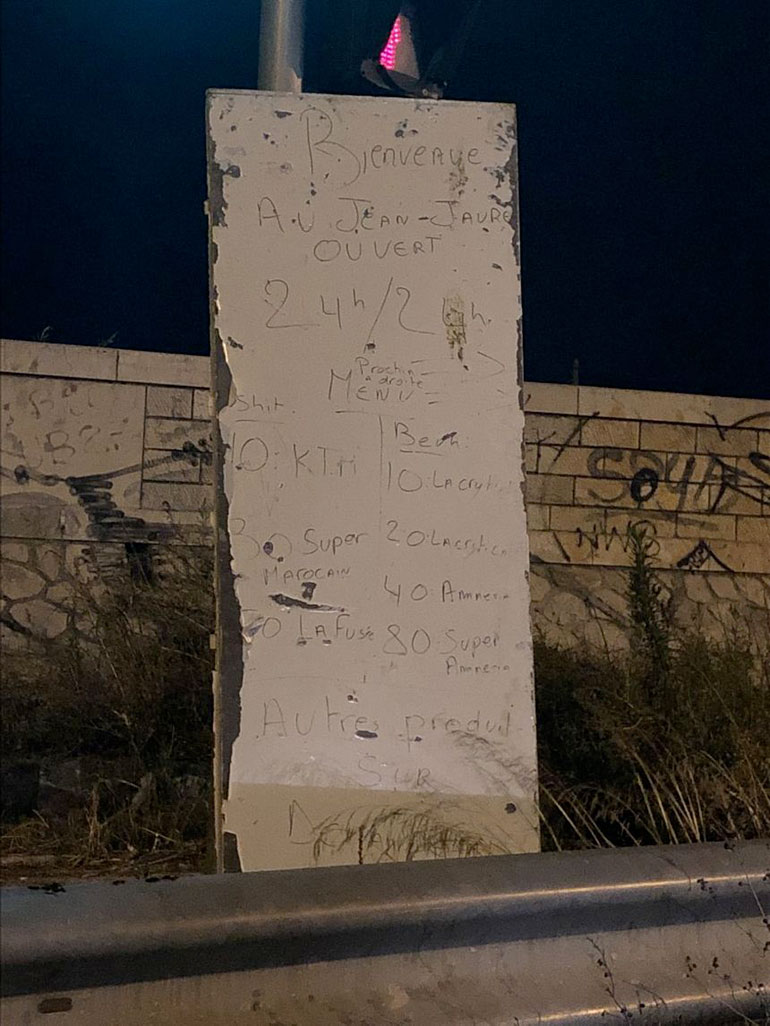 Bienvenue
AU JEAN-JAURE
OUVERT
24h/24h.
Prochin
à droite
MENU =
Shit.
10: KTM
30 Super
MAROCAIN
70 LA Fusé
Beuh:
10: LA cryt
20: LA crytic
40 Amnesia
80 Super
Amnesia
Autres produit
SUR